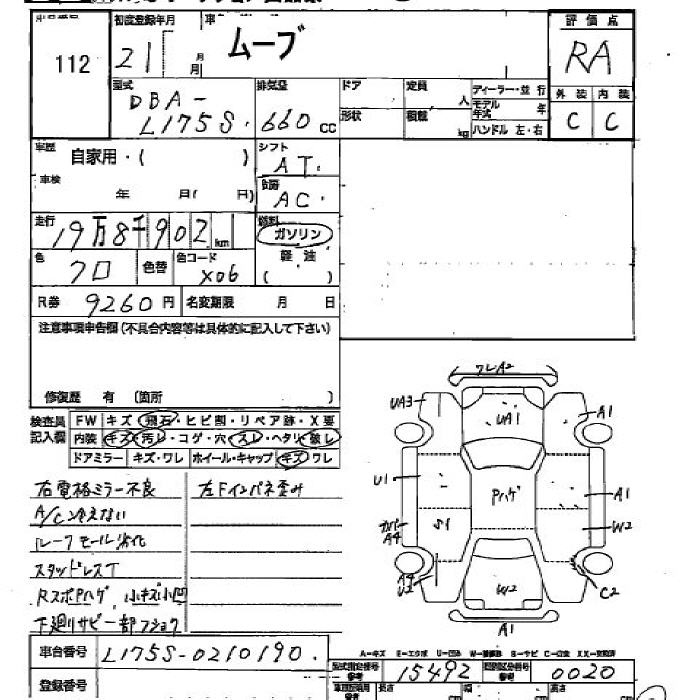 初度登録年月 車名
112 21 月 月 ムーブ
評価点
RA
外装 内装
C C
型式 DBA-
L175S・
排気量 660 CC
ドア 定員 人
形状 積載 kg
ディーラー・並行
モデル年式 年
ハンドル 左・右
車歴 自家用・( )
シフト AT・
車検 年 月( 日)
AC・
走行 19万8千902 km
燃料 ガソリン
軽油
( )
色 クロ 色替 色コード X06
R券 9260円 名変期限 月 日
注意事項申告欄(不具合内容等は具体的に記入して下さい)
修復歴 有 (箇所 )
検査員記入欄
FW キズ・飛石・ヒビ割・リペア跡・X要
内装 キズ・汚レ・コゲ・穴・スレ・ヘタリ・破レ
ドアミラー キズ・ワレ ホイール・キャップ キズ・ワレ
右電格ミラー不良 左Fインパネ歪み
A/C冷えない
ルーフモール劣化
スタッドレスT
RスポPハゲ、小キズ小凹
下廻りサビ一部フショク
ワレA2
UA3
UA1
A1
U1
Pハゲ
A1
カバーA4
S1
W2
A4
U2
W2
C2
A1
A-キズ E-エクボ U-凹み W-補修跡 S-サビ C-腐食 XX-交換済
車台番号 L175S-0210190・
型式指定番号 参考 15492 類別区分番号 参考 0020
登録番号
長さ cm 幅 cm 高さ cm